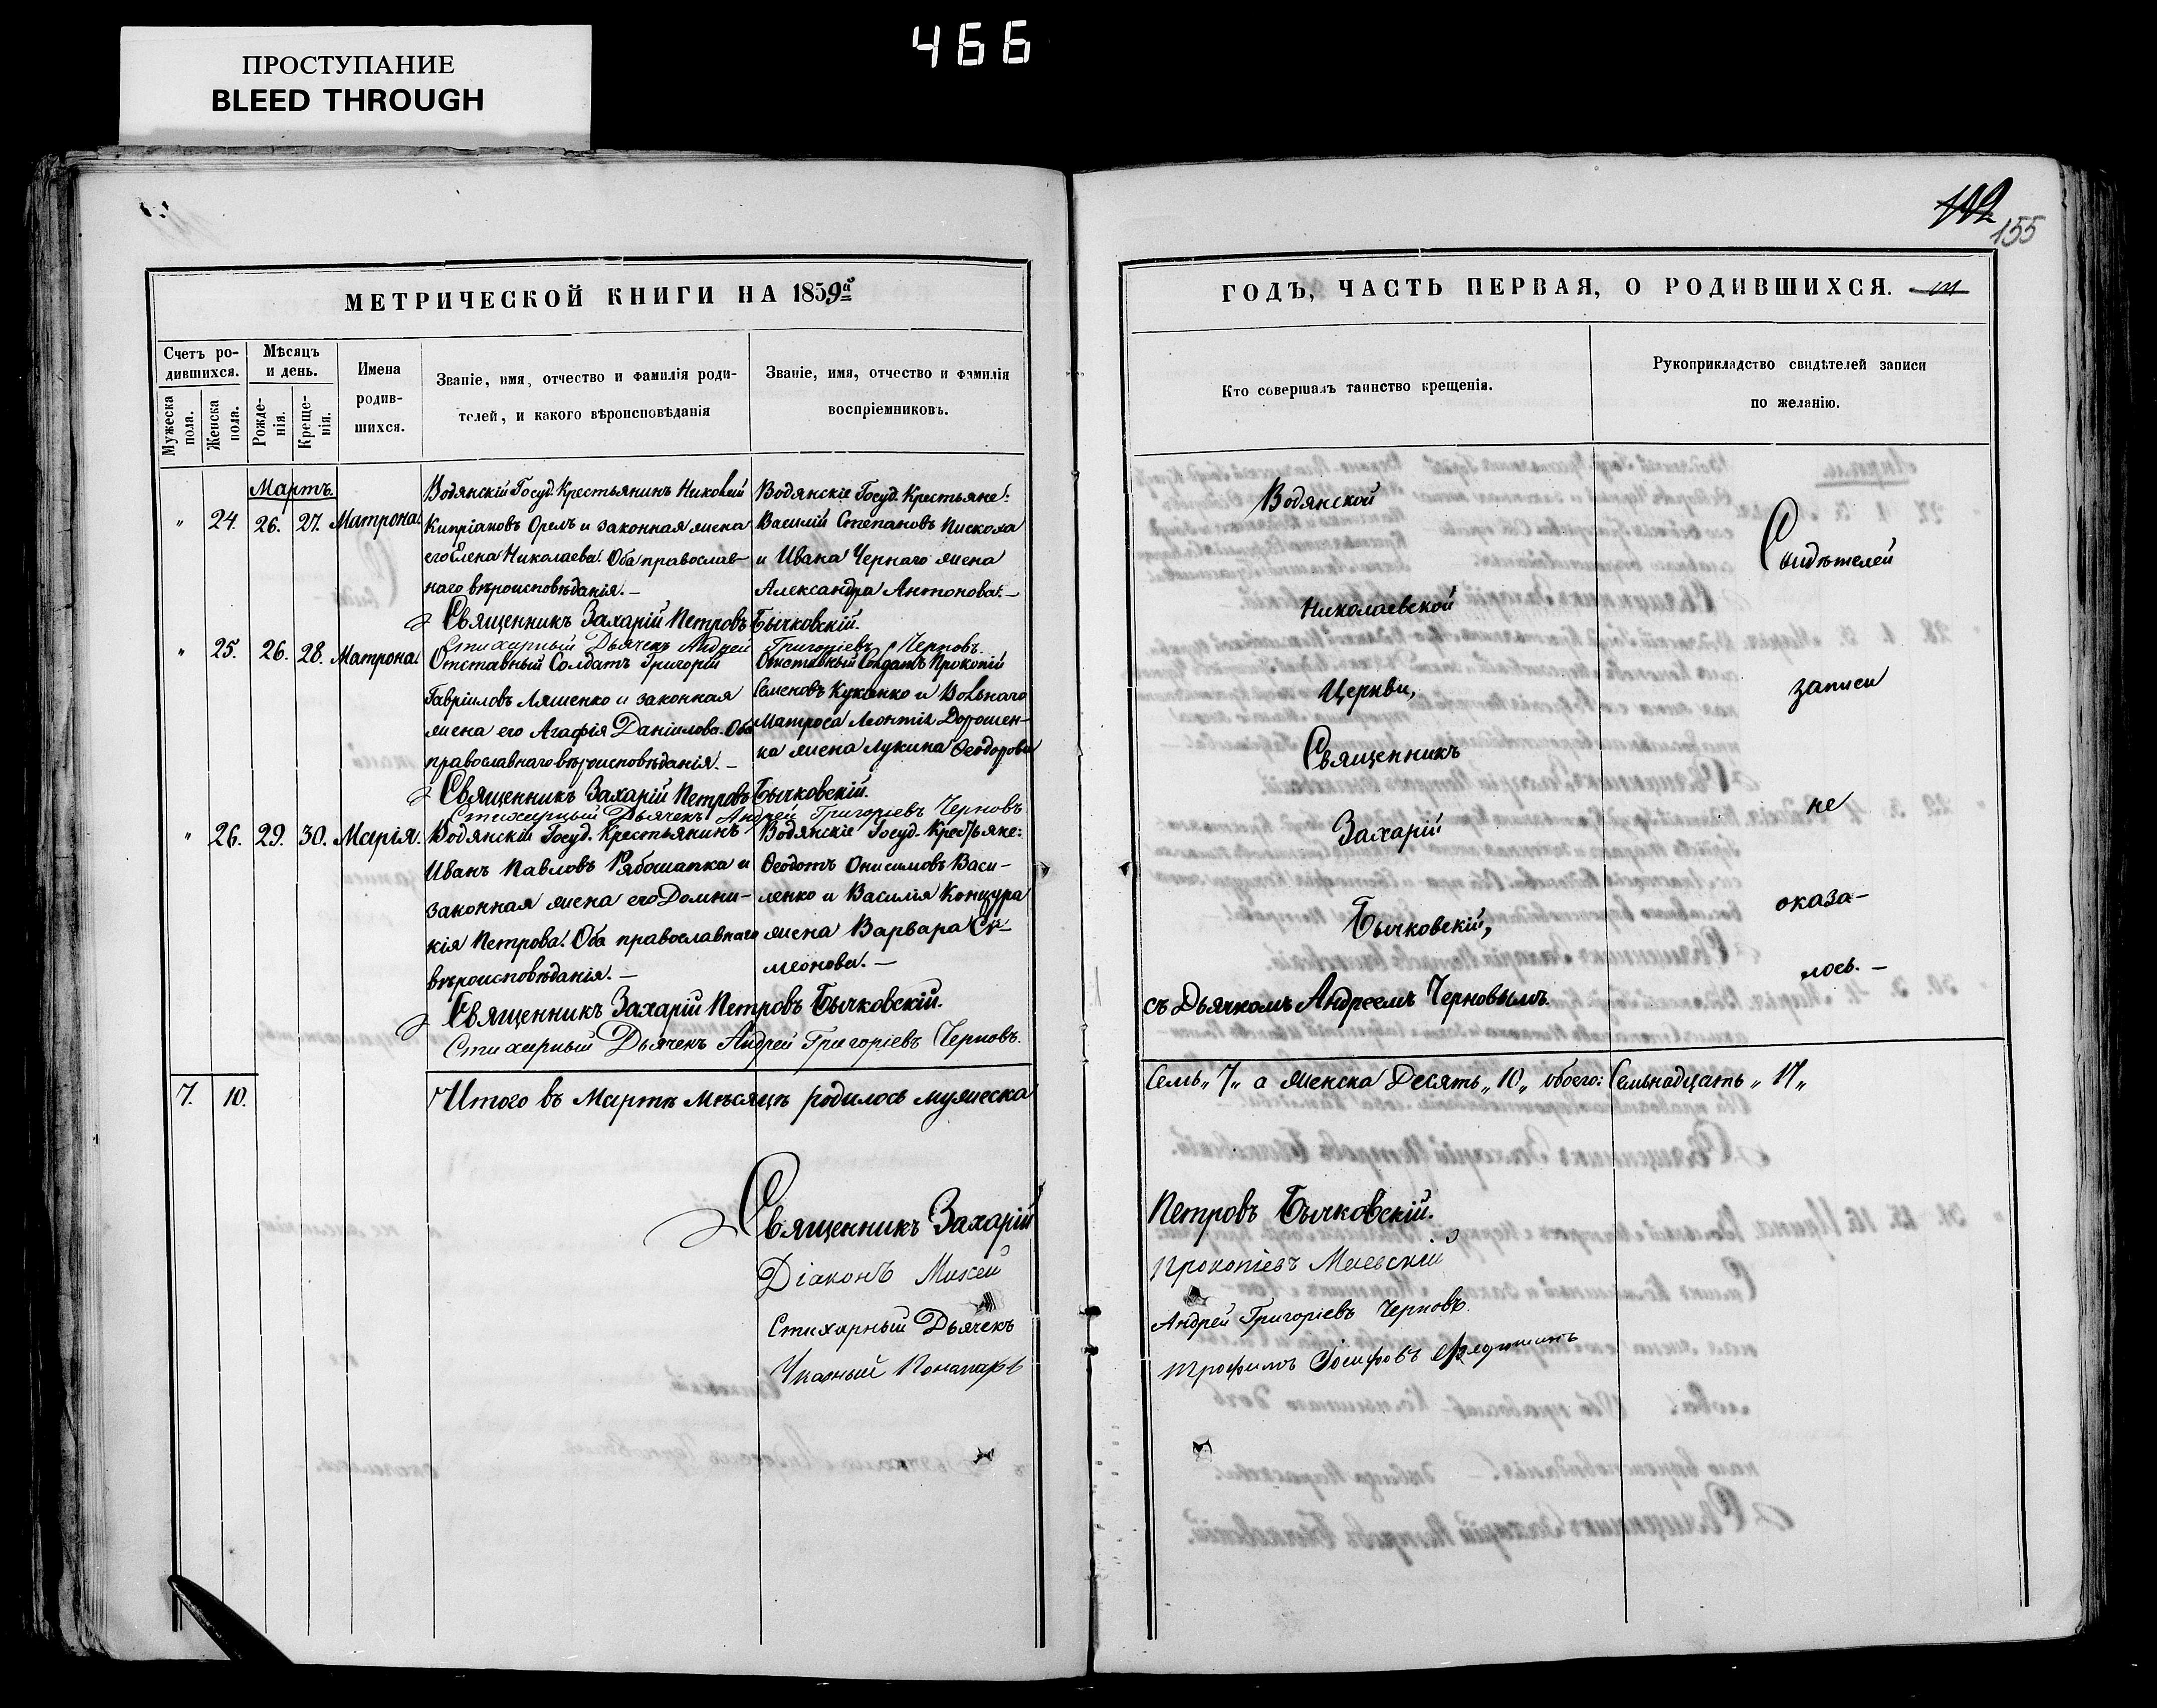 466
ПРОСТУПАНИЕ
BLEED THROUGH
155
МЕТРИЧЕСКОЙ КНИГИ НА 1859й
Счетъ ро-
дившихся.
Мужеска пола.
Женска пола.
Мѣсяцъ
и день.
Рожде-
нія.
Креще-
нія.
Имена
родив-
шихся.
Званіе, имя, отчество и фамилія роди-
телей, и какого вѣроисповѣданія
Званіе, имя, отчество и фамилія
воспріемниковъ.
Мартъ.
„ 24. 26. 27. Матрона.
Водянскій Госуд. Крестьянинъ Николай
Кипріановъ Орелъ и законная жена
его Елена Николаева. Оба православ-
наго вѣроисповѣданія.–
Водянскіе Госуд. Крестьяне:
Василій Степановъ Пискоха
и Ивана Чернаго жена
Александра Антонова.–
Священникъ Захарій Петровъ Бычковскій.
Стихарный Дьячекъ Андрей Григоріевъ Черновъ.
„ 25. 26. 28. Матрона.
Отставный Солдатъ Григорій
Гавріиловъ Ляшенко и законная
жена его Агафія Даніилова. Оба
православнаго вѣроисповѣданія.–
Отставный Солдатъ Прокопій
Семеновъ Куканко и Вольнаго
Матроса Леонтія Дорошен-
ка жена Лукина Ѳеодорова
Священникъ Захарій Петровъ Бычковскій.
Стихарный Дьячекъ Андрей Григоріевъ Черновъ
„ 26. 29. 30. Марія.
Водянскій Госуд. Крестьянинъ
Иванъ Павловъ Рябошапка и
законная жена его Домни-
кія Петрова. Оба православнаго
вѣроисповѣданія.–
Водянскіе Госуд. Крестьяне:
Ѳеодотъ Онисимовъ Васи-
ленко и Василія Концура
жена Варвара Си-
меонова.–
Священникъ Захарій Петровъ Бычковскій.
Стихарный Дьячекъ Андрей Григоріевъ Черновъ.
7. 10.
Итого въ Мартѣ Мѣсяцѣ родилось мужеска
Священникъ Захарій
Діаконъ Михей
Стихарный Дьячекъ
Указный Пономарь
ГОДЪ, ЧАСТЬ ПЕРВАЯ, О РОДИВШИХСЯ.
Кто совершалъ таинство крещенія.
Рукоприкладство свидѣтелей записи
по желанію.
Водянской
Николаевской
Церкви,
Священникъ
Захарій
Бычковскій,
съ Дьячкомъ Андреемъ Черновымъ.
Свидѣтелей
записи
не
оказа–
лось.–
Семь „7„ а женска Десять „10„ обоего: Семьнадцать „17„
Петровъ Бычковскій.
Прокопіевъ Маевскій
Андрей Григоріевъ Черновъ.
Трофимъ Іосифовъ